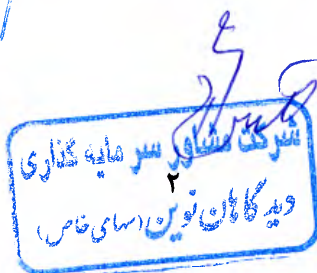 شرکت مشاور سرمایه گذاری
۲
دیدگاهان نوین (سهامی خاص)